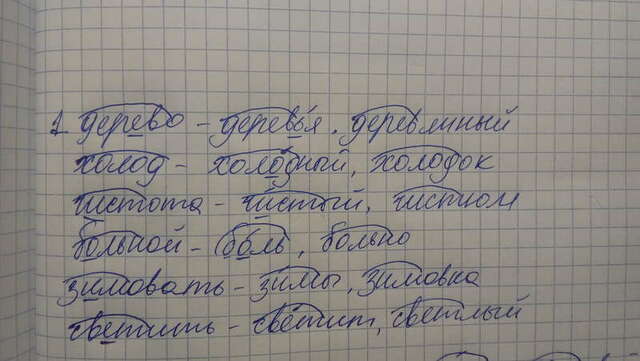 1. дерево - деревья, деревянный
холод - холодный, холодок
чистота - чистый, чистюля
больной - боль, больно
зимовать - зимы, зимовка
светить - светит, светлый